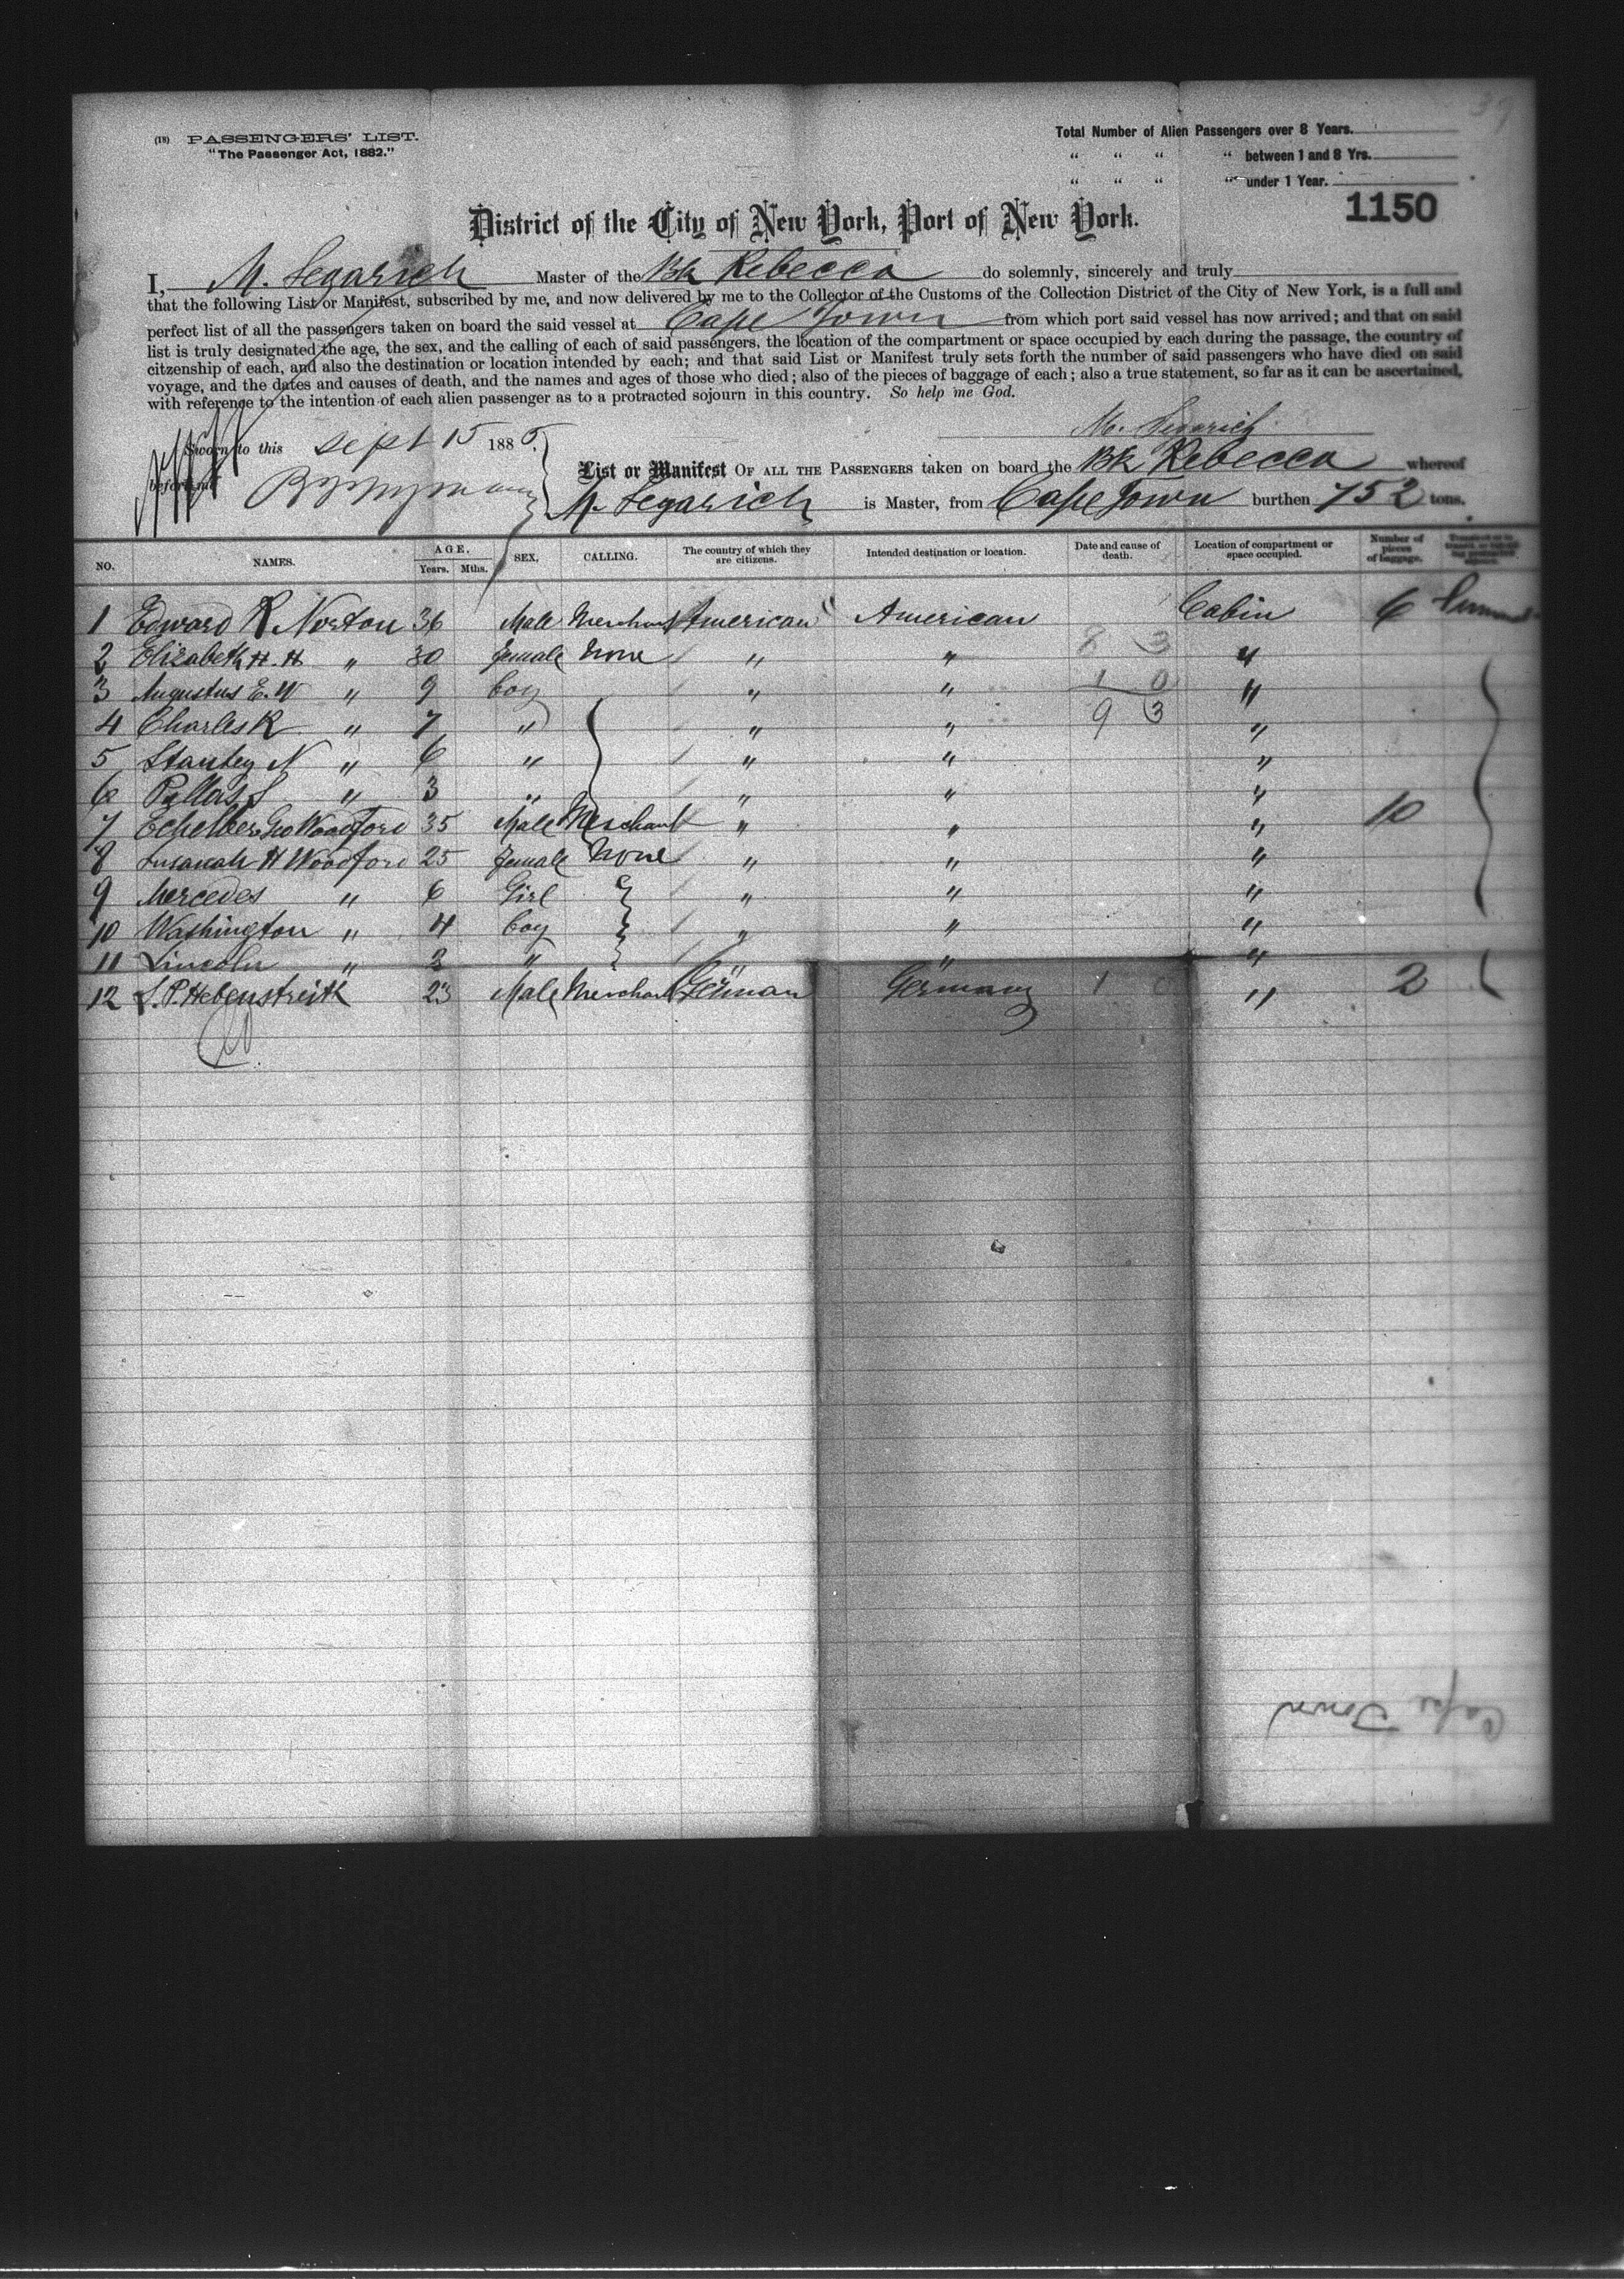 (18) PASSENGERS' LIST.
"The Passenger Act, 1882."
Total Number of Alien Passengers over 8 Years.
" " " " between 1 and 8 Yrs.
" " " " under 1 Year.
1150
District of the City of New York, Port of New York.
I, M. Segarich Master of the Bk Rebecca do solemnly, sincerely and truly
that the following List or Manifest, subscribed by me, and now delivered by me to the Collector of the Customs of the Collection District of the City of New York, is a full and
perfect list of all the passengers taken on board the said vessel at Cape Town from which port said vessel has now arrived; and that on said
list is truly designated the age, the sex, and the calling of each of said passengers, the location of the compartment or space occupied by each during the passage, the country of
citzenship of each, and also the destination or location intended by each; and that said List or Manifest truly sets forth the number of said passengers who have died on said
voyage, and the dates and causes of death, and the names and ages of those who died; also of the pieces of baggage of each; also a true statement, so far as it can be ascertained,
with reference to the intention of each alien passenger as to a protracted sojourn in this country. So help me God.
M. Segarich
Sworn to this Sept 15 1885
before me
List or Manifest OF ALL THE PASSENGERS taken on board the Bk Rebecca whereof
M. Segarich is Master, from Cape Town burthen 752 tons.
NO. NAMES. AGE. Years. Mths. SEX. CALLING. The country of which they are citizens. Intended destination or location. Date and cause of death. Location of compartment or space occupied. Number of pieces of baggage.
1 Edward R Norton 36 Male Merchant American American Cabin 6
2 Elizabeth H. H " 30 female None " " 8 3 "
3 Augustus E. W " 9 boy " " 1 0 "
4 Charles R " 7 " " " 9 3 "
5 Stanley N " 6 " " " "
6 " 3 " " " "
7 Geo Woodford 35 Male Merchant " " " 10
8 Susanah H Woodford 25 female None " " "
9 Mercedes " 6 Girl " " "
10 Washington " 4 boy " " "
11 Lincoln " 2 " " " "
12 S. P. Hebenstreitk 23 Male Merchant German Germany 1 0 " 2
Cape Town